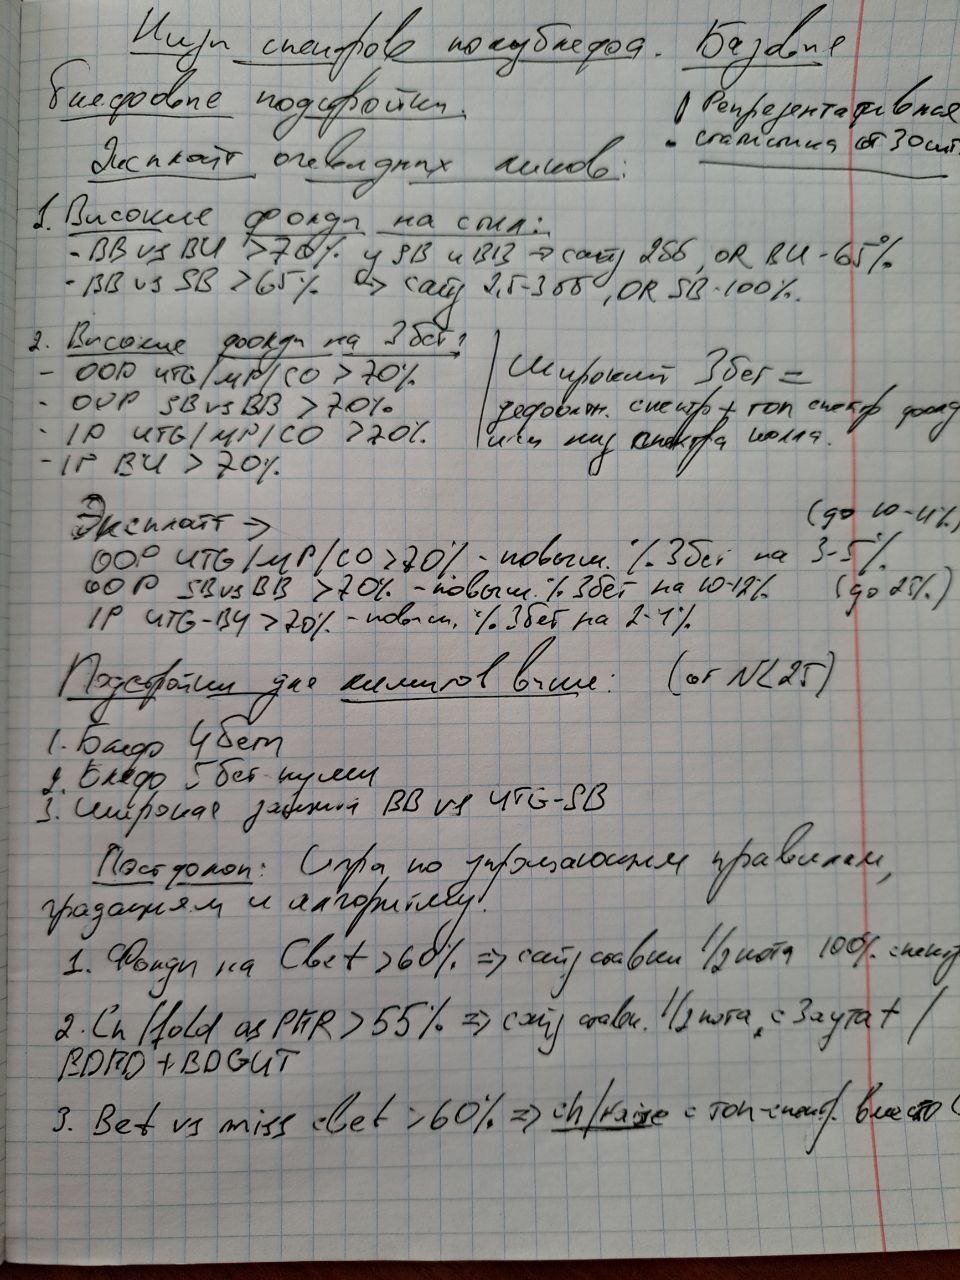 Низы спектров полублефов. Базовые
блефовые подстройки.
! Репрезентативная
статистика от 30 шт.
Эксплойт очевидных ликов:
1. Высокие фолды на стил:
- BB vs BU >70% у SB и BB → сайз 2бб, OR BU - 65%
- BB vs SB >65% → сайз 2,5-3бб, OR SB-100%.
2. Высокие фолды на 3бет:
- OOP UTG/MP/CO >70%
- OOP SB vs BB >70%
- IP UTG/MP/CO >70%
- IP BU >70%
Широкий 3бет =
дефолтн. спектр + топ спектр фолд
или низ спектра колла.
Эксплойт →
OOP UTG/MP/CO >70% - повыш. % 3бет на 3-5% (до 10-11%)
OOP SB vs BB >70% - повыш. % 3бет на 10-12% (до 25%)
IP UTG-BU >70% - повыш. % 3бет на 2-4%
Подстройки для лимитов выше: (от NL25)
1. Блеф 4беты
2. Блеф 5бет пуши
3. Широкая защита BB vs UTG-SB
Постфлоп: Игра по упрощающим правилам,
градациям и алгоритму!
1. Фолды на Cbet >60% ⇒ сайз ставки 1/2 пота 100%
2. Ch/fold as PFR >55% ⇒ сайз ставк. 1/2 пота, с 3 аута + /
BDFD + BDGUT
3. Bet vs miss cbet >60% ⇒ ch/raise с топ-спект. вместо